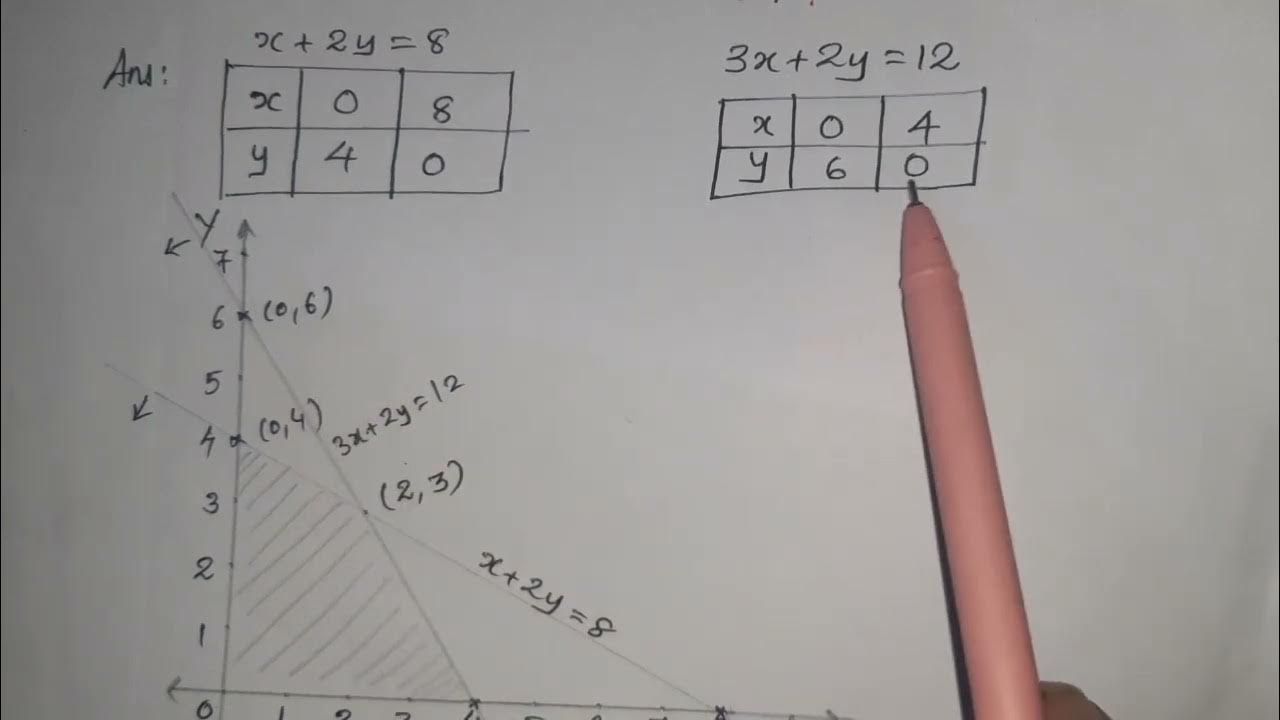 x + 2y = 8
3x + 2y = 12
Ans:
x 0 8
y 4 0
x 0 4
y 6 0
Y
7
6 (0,6)
5
3x+2y=12
4 (0,4)
3 (2,3)
2
x+2y=8
1
0